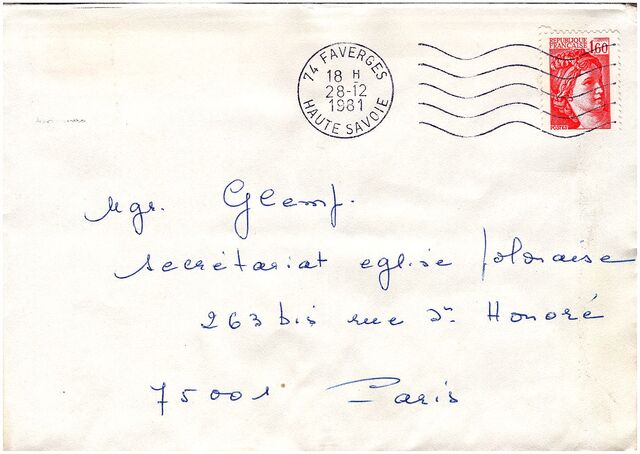 74 FAVERGES
18 H
28-12
1981
HAUTE SAVOIE
REPUBLIQUE
FRANÇAISE
1,60
Mgr. Glemp.
secrétariat eglise polonaise
263 bis rue St. Honoré
75001 Paris